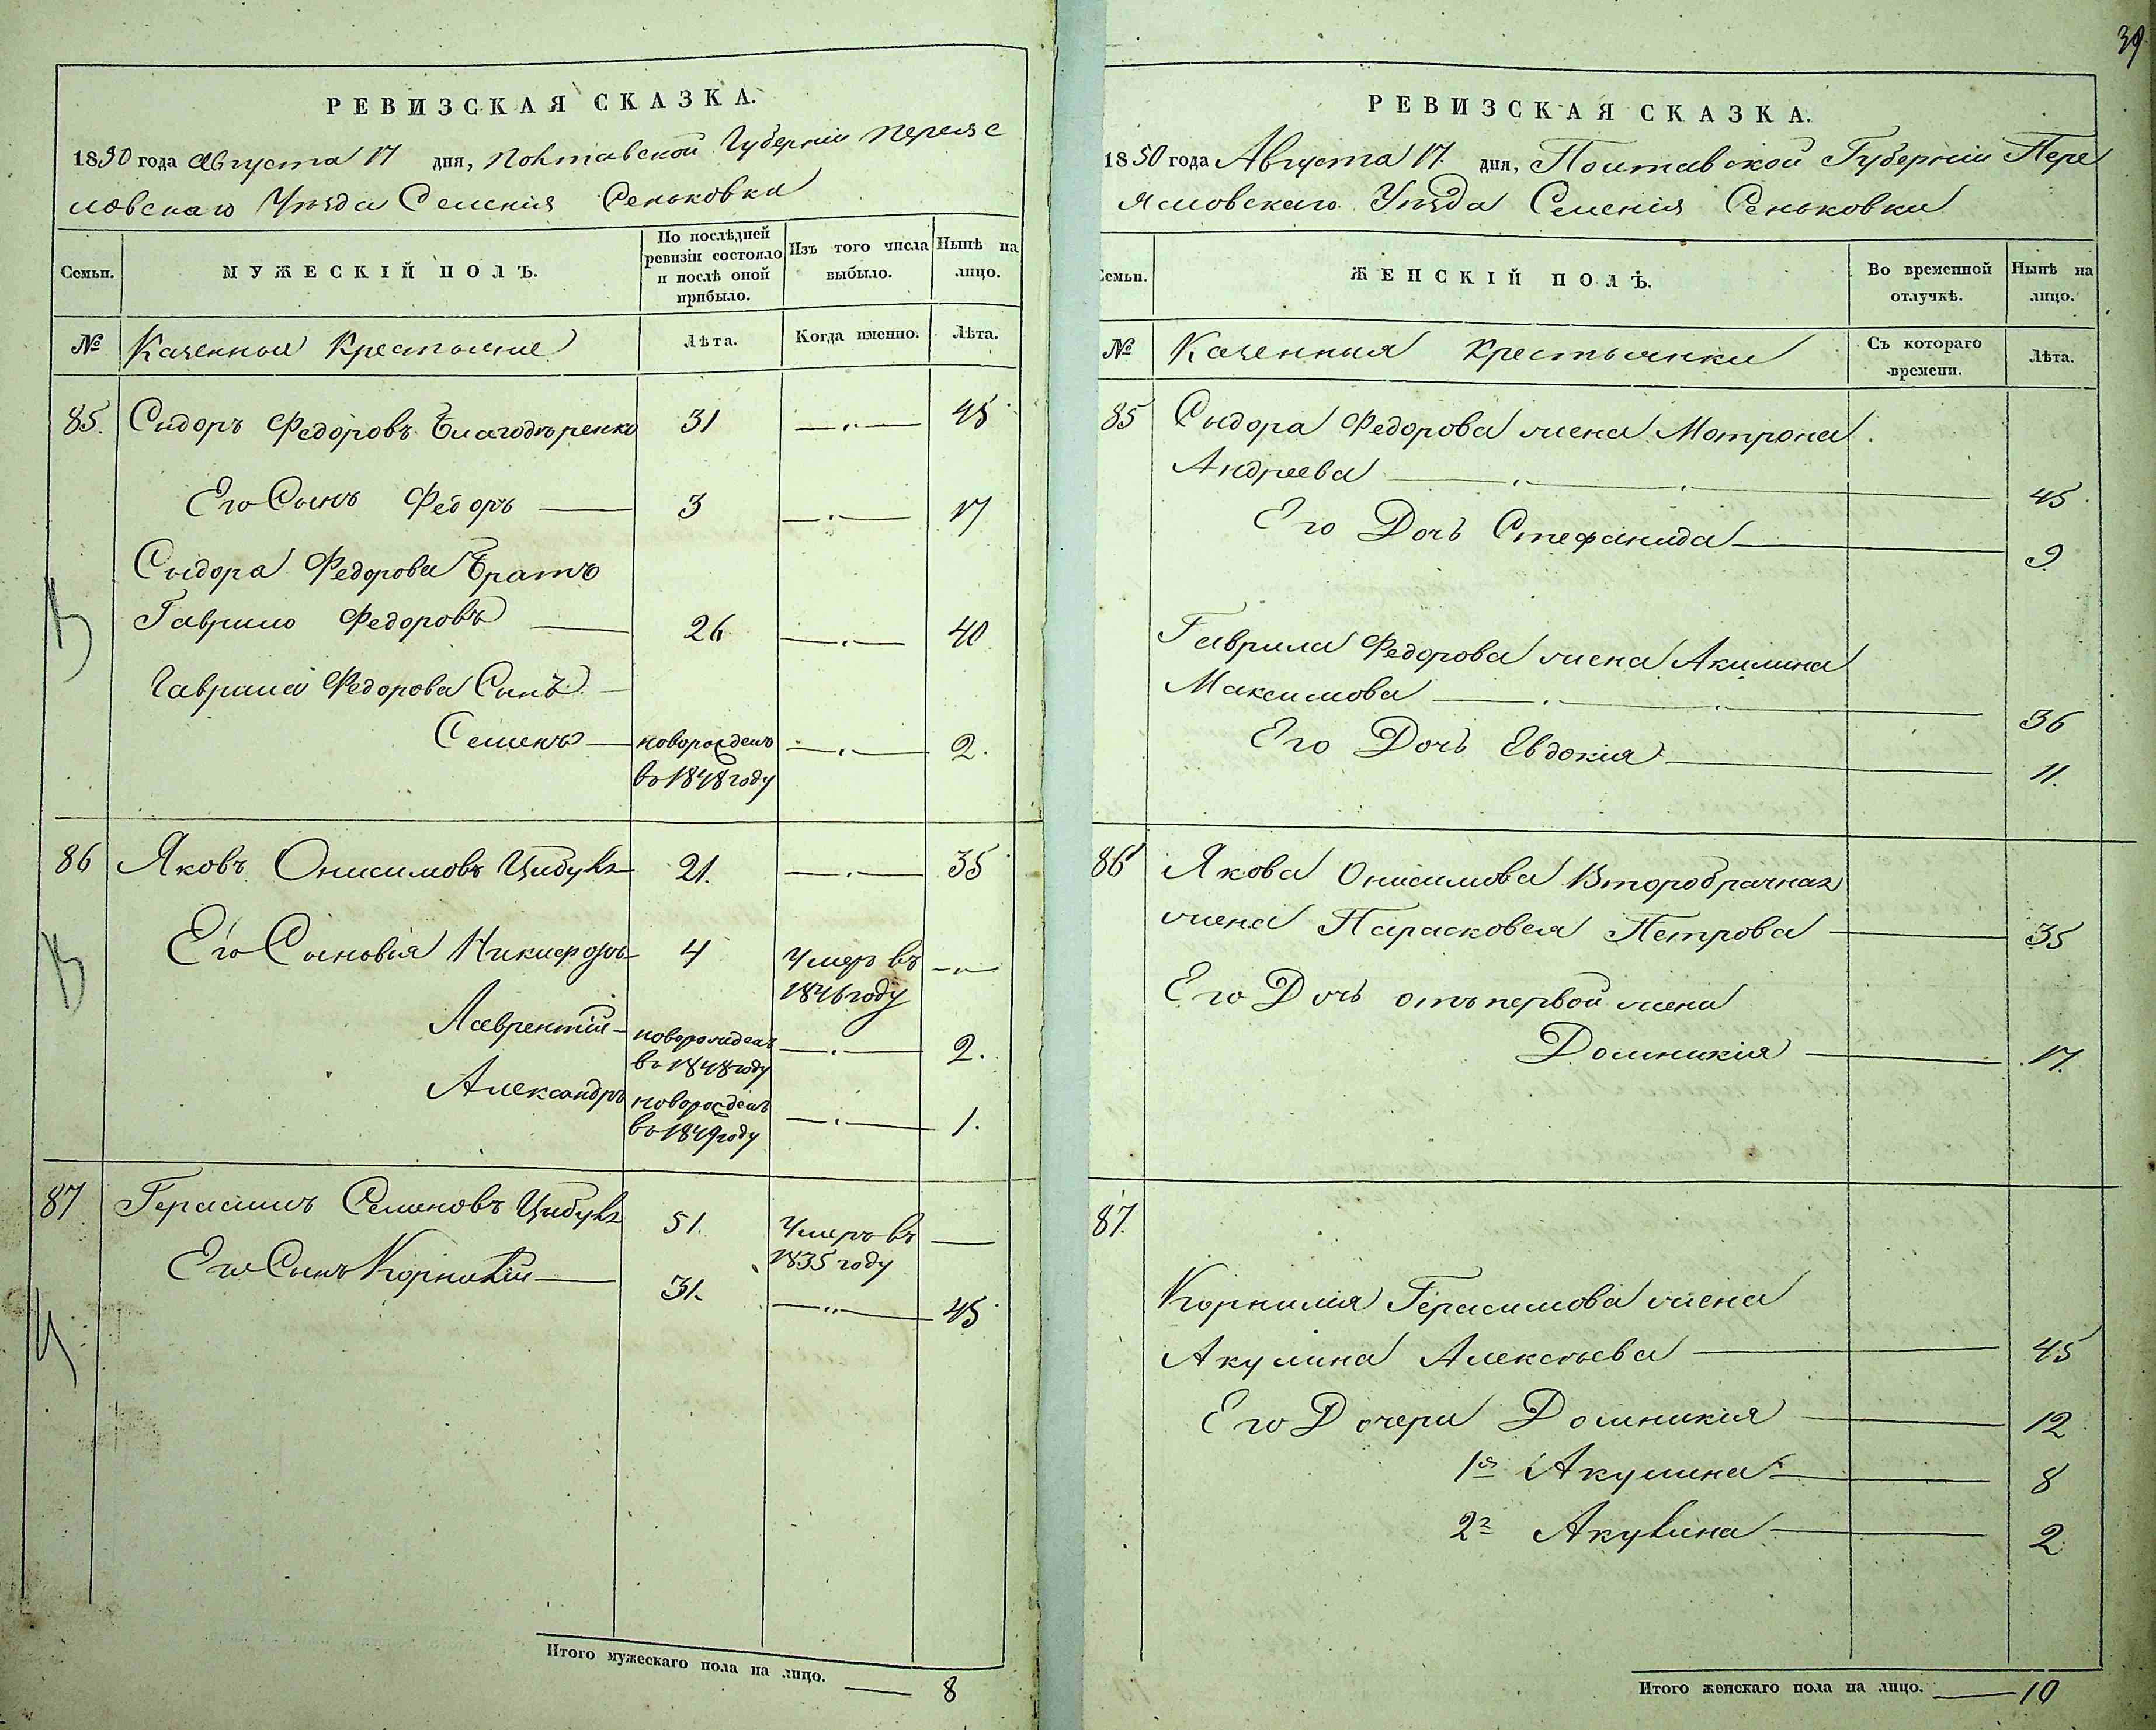 39
РЕВИЗСКАЯ СКАЗКА.
1850 года Августа 17 дня, Полтавской Губерніи Переяс
ловскаго Уѣзда Селенія Сеньковки
Семьи.
МУЖЕСКІЙ ПОЛЪ.
По послѣдней ревизіи состояло и послѣ оной прибыло.
Изъ того числа выбыло.
Нынѣ на лицо.
№ Казенные Крестьяне
Лѣта.
Когда именно.
Лѣта.
85. Сидоръ Федоровъ Благодѣренко 31 —„— 45
Его Сынъ Федоръ — 3 —„— 17
Сидора Федорова Братъ
Гаврило Федоровъ — 26 —„— 40
Гаврила Федорова Сынъ
Семенъ — новорожденъ —„— 2.
въ 1848 году
86 Яковъ Онисимовъ Цибуля 21. —„— 35
Его Сыновья Никифоръ 4 Умеръ въ —„—
1846 году
Лаврентій — новорожденъ —„— 2.
въ 1848 году
Александръ новорожденъ —„— 1.
въ 1849 году
87 Герасимъ Семеновъ Цибуля 51. Умеръ въ —
1835 году
Его Сынъ Корнилій — 31. —„— 45
Итого мужескаго пола на лицо. — 8
РЕВИЗСКАЯ СКАЗКА.
1850 года Августа 17. дня, Полтавской Губерніи Пере
ясловскаго Уѣзда Селенія Сеньковки
Семьи.
ЖЕНСКІЙ ПОЛЪ.
Во временной отлучкѣ.
Нынѣ на лицо.
№ Казенныя Крестьянки
Съ котораго времени.
Лѣта.
85 Сидора Федорова жена Мотрона
Андреева — 45
Его Дочь Стефанида — 9
Гаврила Федорова жена Акилина
Максимова — 36
Его Дочь Евдокія — 11.
86 Якова Онисимова Второбрачная
жена Парасковея Петрова — 35
Его Дочь отъ первой жены
Домникія — 17.
87.
Корнилія Герасимова жена
Акулина Алексѣева — 45
Его Дочери Домникія — 12
1я Акулина — 8
2я Акулина — 2
Итого женскаго пола на лицо. — 10